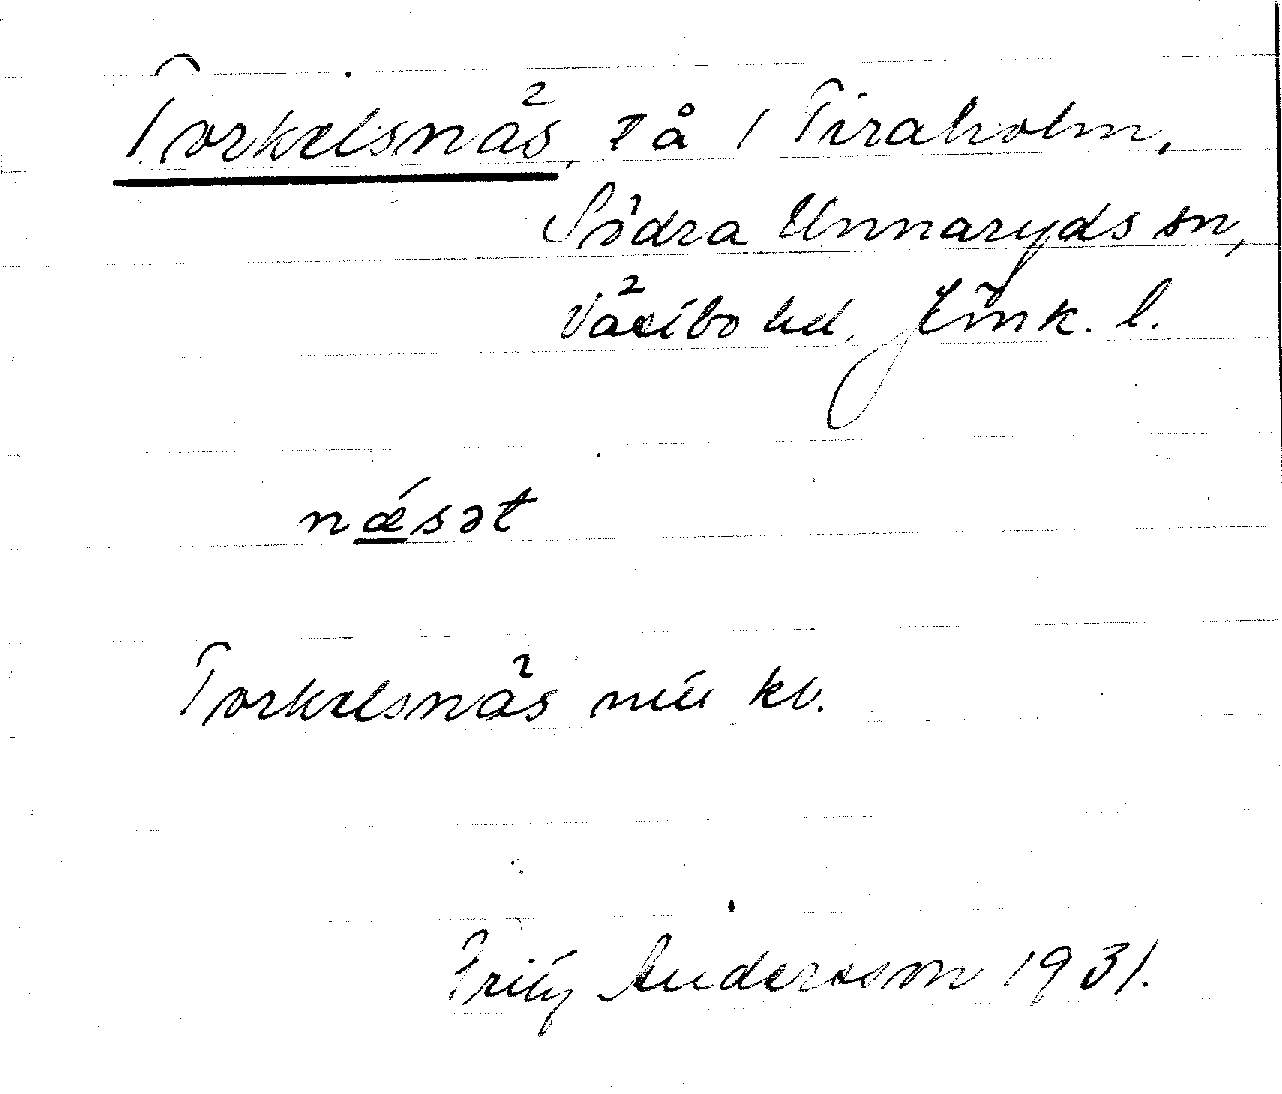 Torkelsnäs, Då / Tiraholm,
Södra Unnaryds sn,
Västbo hd. Jönk. l.
nǽsət
Torkelsnäs nu kv.
Fritz Andersson 1931.